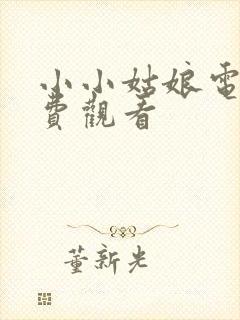 小小姑娘電
費觀看
董新光